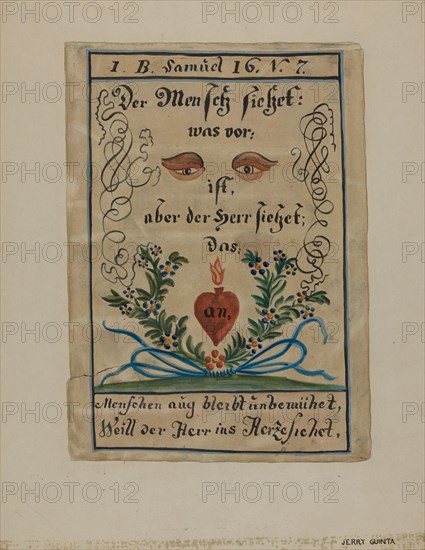 1. B. Samuel 16. V. 7.
Der Mensch siehet:
was vor:
ist,
aber der Herr siehet;
Das;
an,
Menschen aug bleibt unbemühet,
Weill der Herr ins Herze siehet,
JERRY GUINTA
PHOTO12